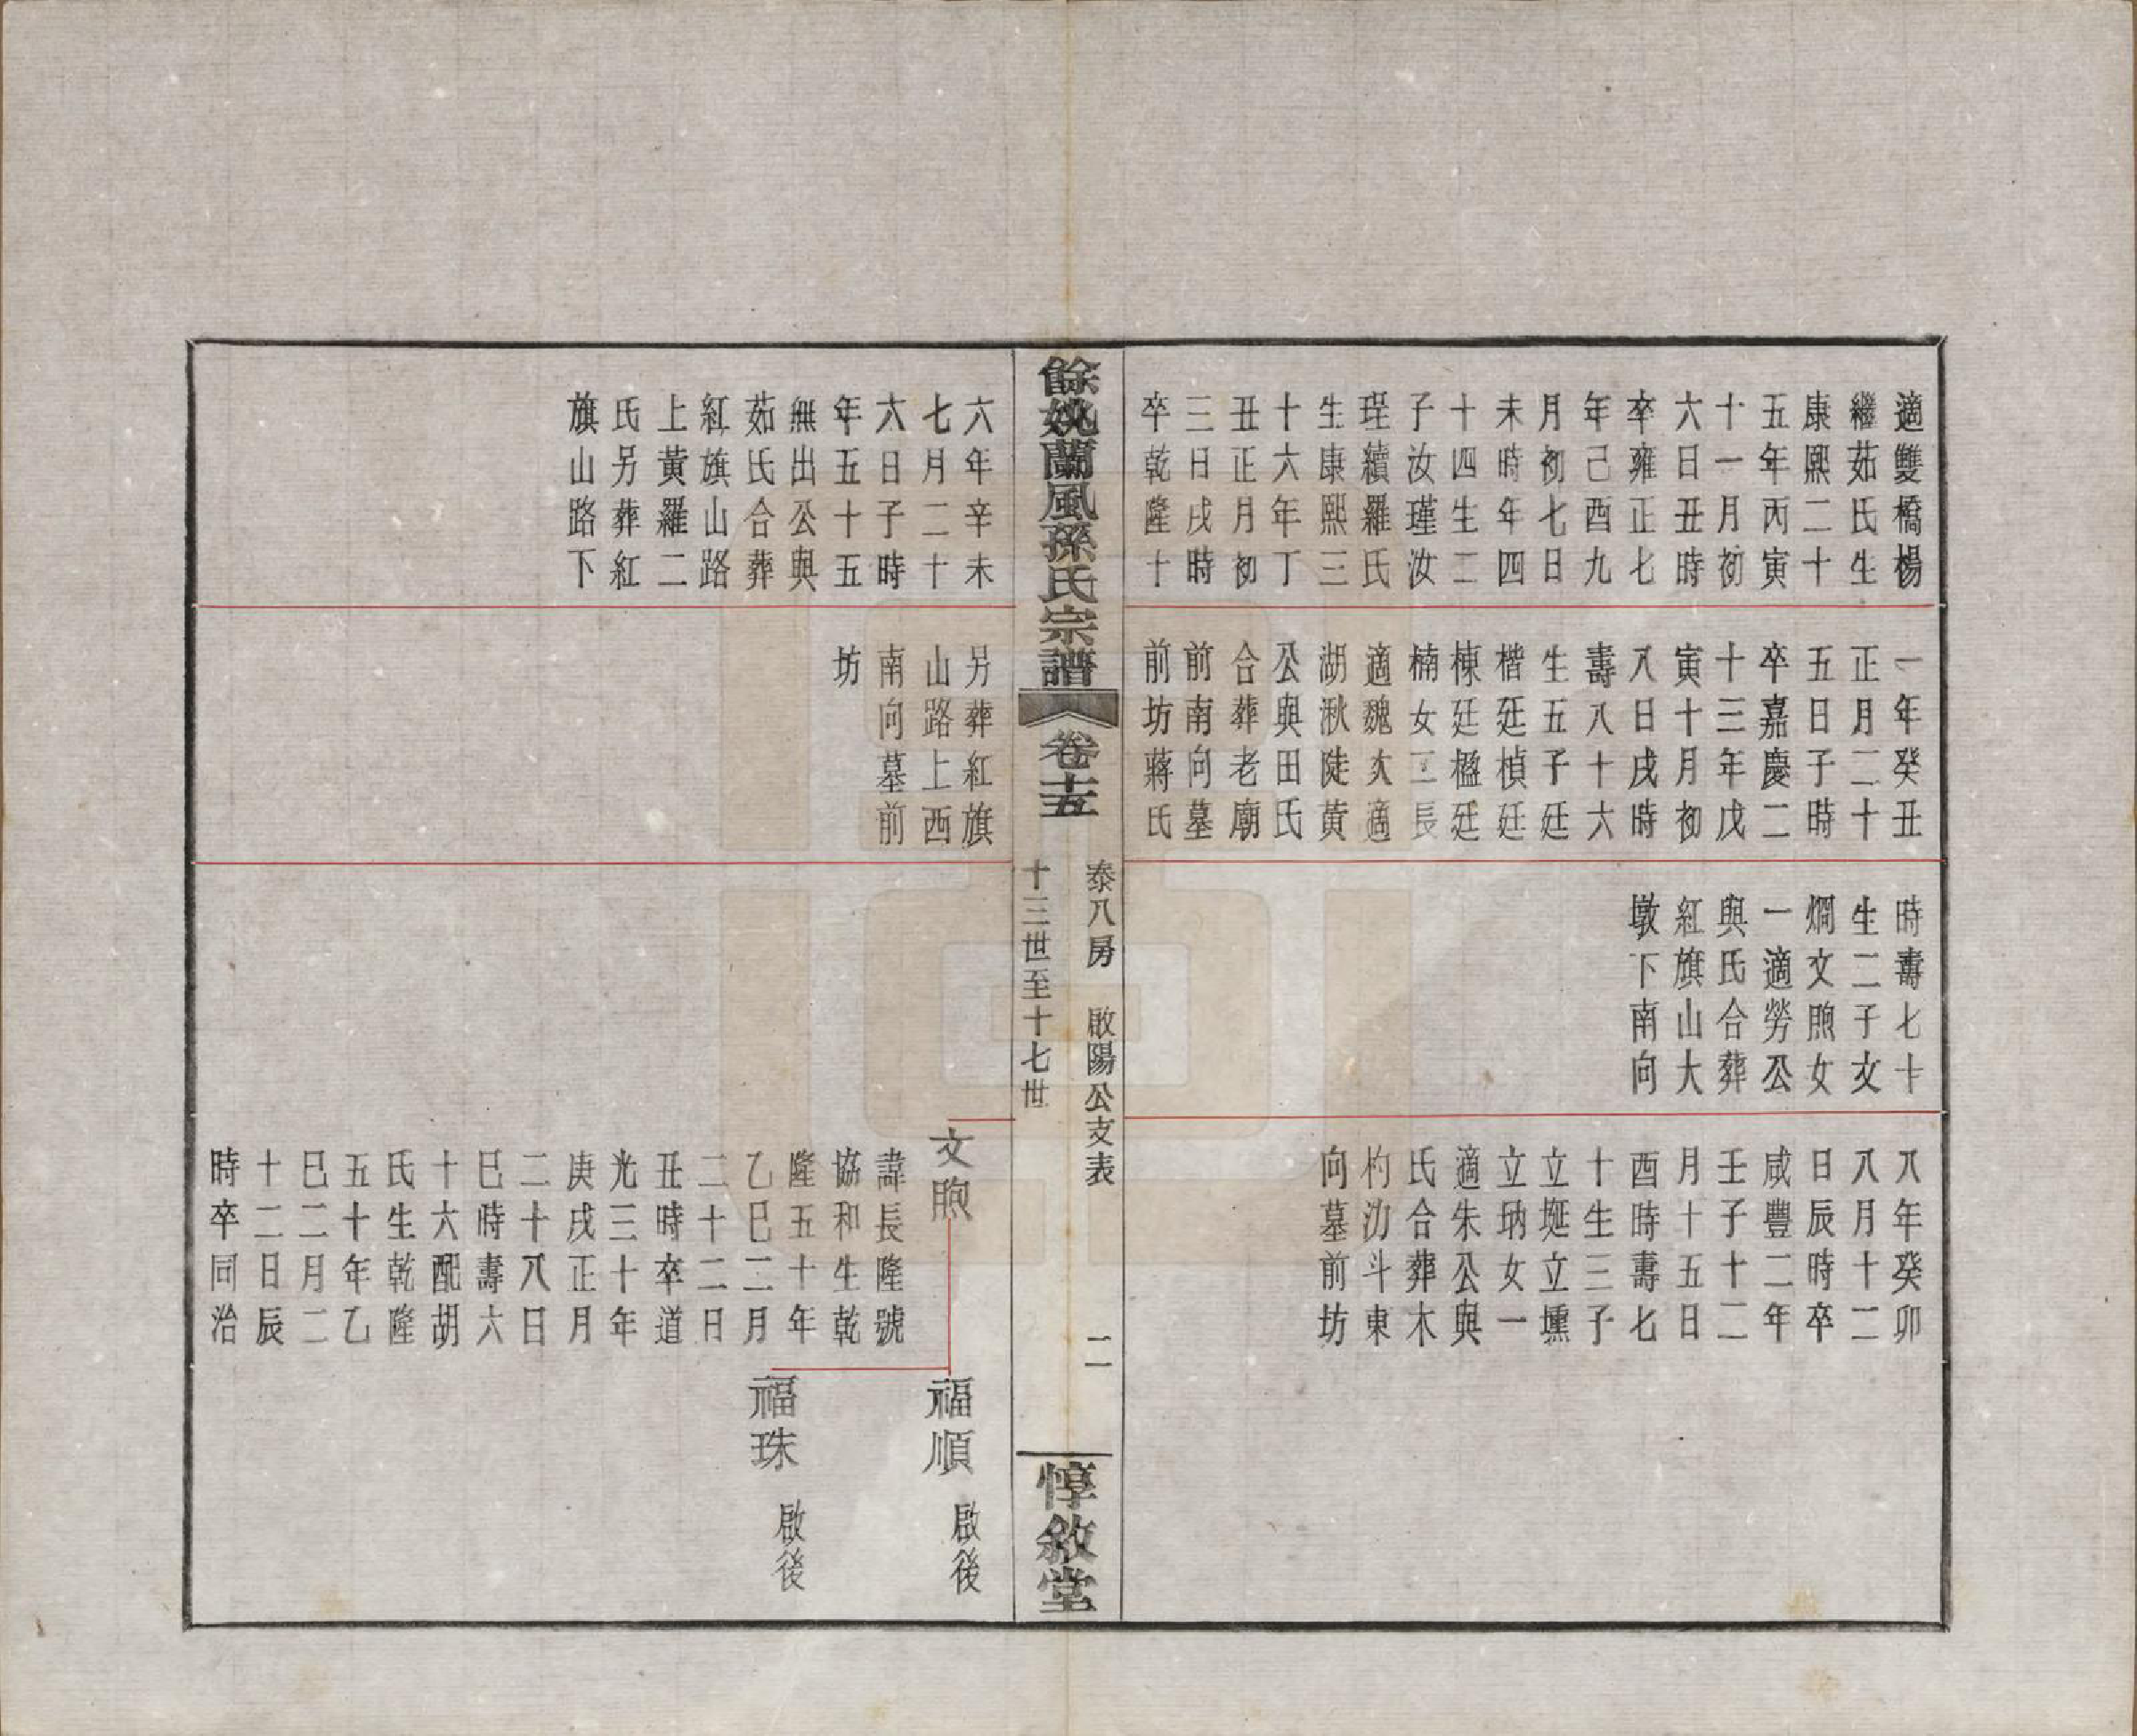 適雙橋楊
繼茹氏生
康熙二十
五年丙寅
十一月初
六日丑時
卒雍正七
年己酉九
月初七日
未時年四
十四生二
子汝瑾汝
珵續羅氏
生康熙三
十六年丁
丑正月初
三日戌時
卒乾隆十
一年癸丑
正月二十
五日子時
卒嘉慶二
十三年戊
寅十月初
八日戌時
壽八十六
生五子廷
楷廷楨廷
棟廷楹廷
楠女二長
適魏次適
湖湫陡黃
公與田氏
合葬老廟
前南向墓
前坊蔣氏
時壽七十
生二子文
燗文煦女
一適勞公
與氏合葬
紅旗山大
墩下南向
八年癸卯
八月十二
日辰時卒
咸豐二年
壬子十二
月十五日
酉時壽七
十生三子
立埏立壎
立玬女一
適朱公與
氏合葬木
杓沕斗東
向墓前坊
餘姚蘭風孫氏宗譜
卷十五
泰八房 啟陽公支表
十三世至十七世
二
惇敘堂
六年辛未
七月二十
六日子時
年五十五
無出公與
茹氏合葬
紅旗山路
上黃羅二
氏另葬紅
旗山路下
另葬紅旗
山路上西
南向墓前
坊
文煦
諱長隆號
協和生乾
隆五十年
乙巳二月
二十二日
丑時卒道
光三十年
庚戌正月
二十八日
巳時壽六
十六配胡
氏生乾隆
五十年乙
巳二月二
十二日辰
時卒同治
福順 啟後
福珠 啟後